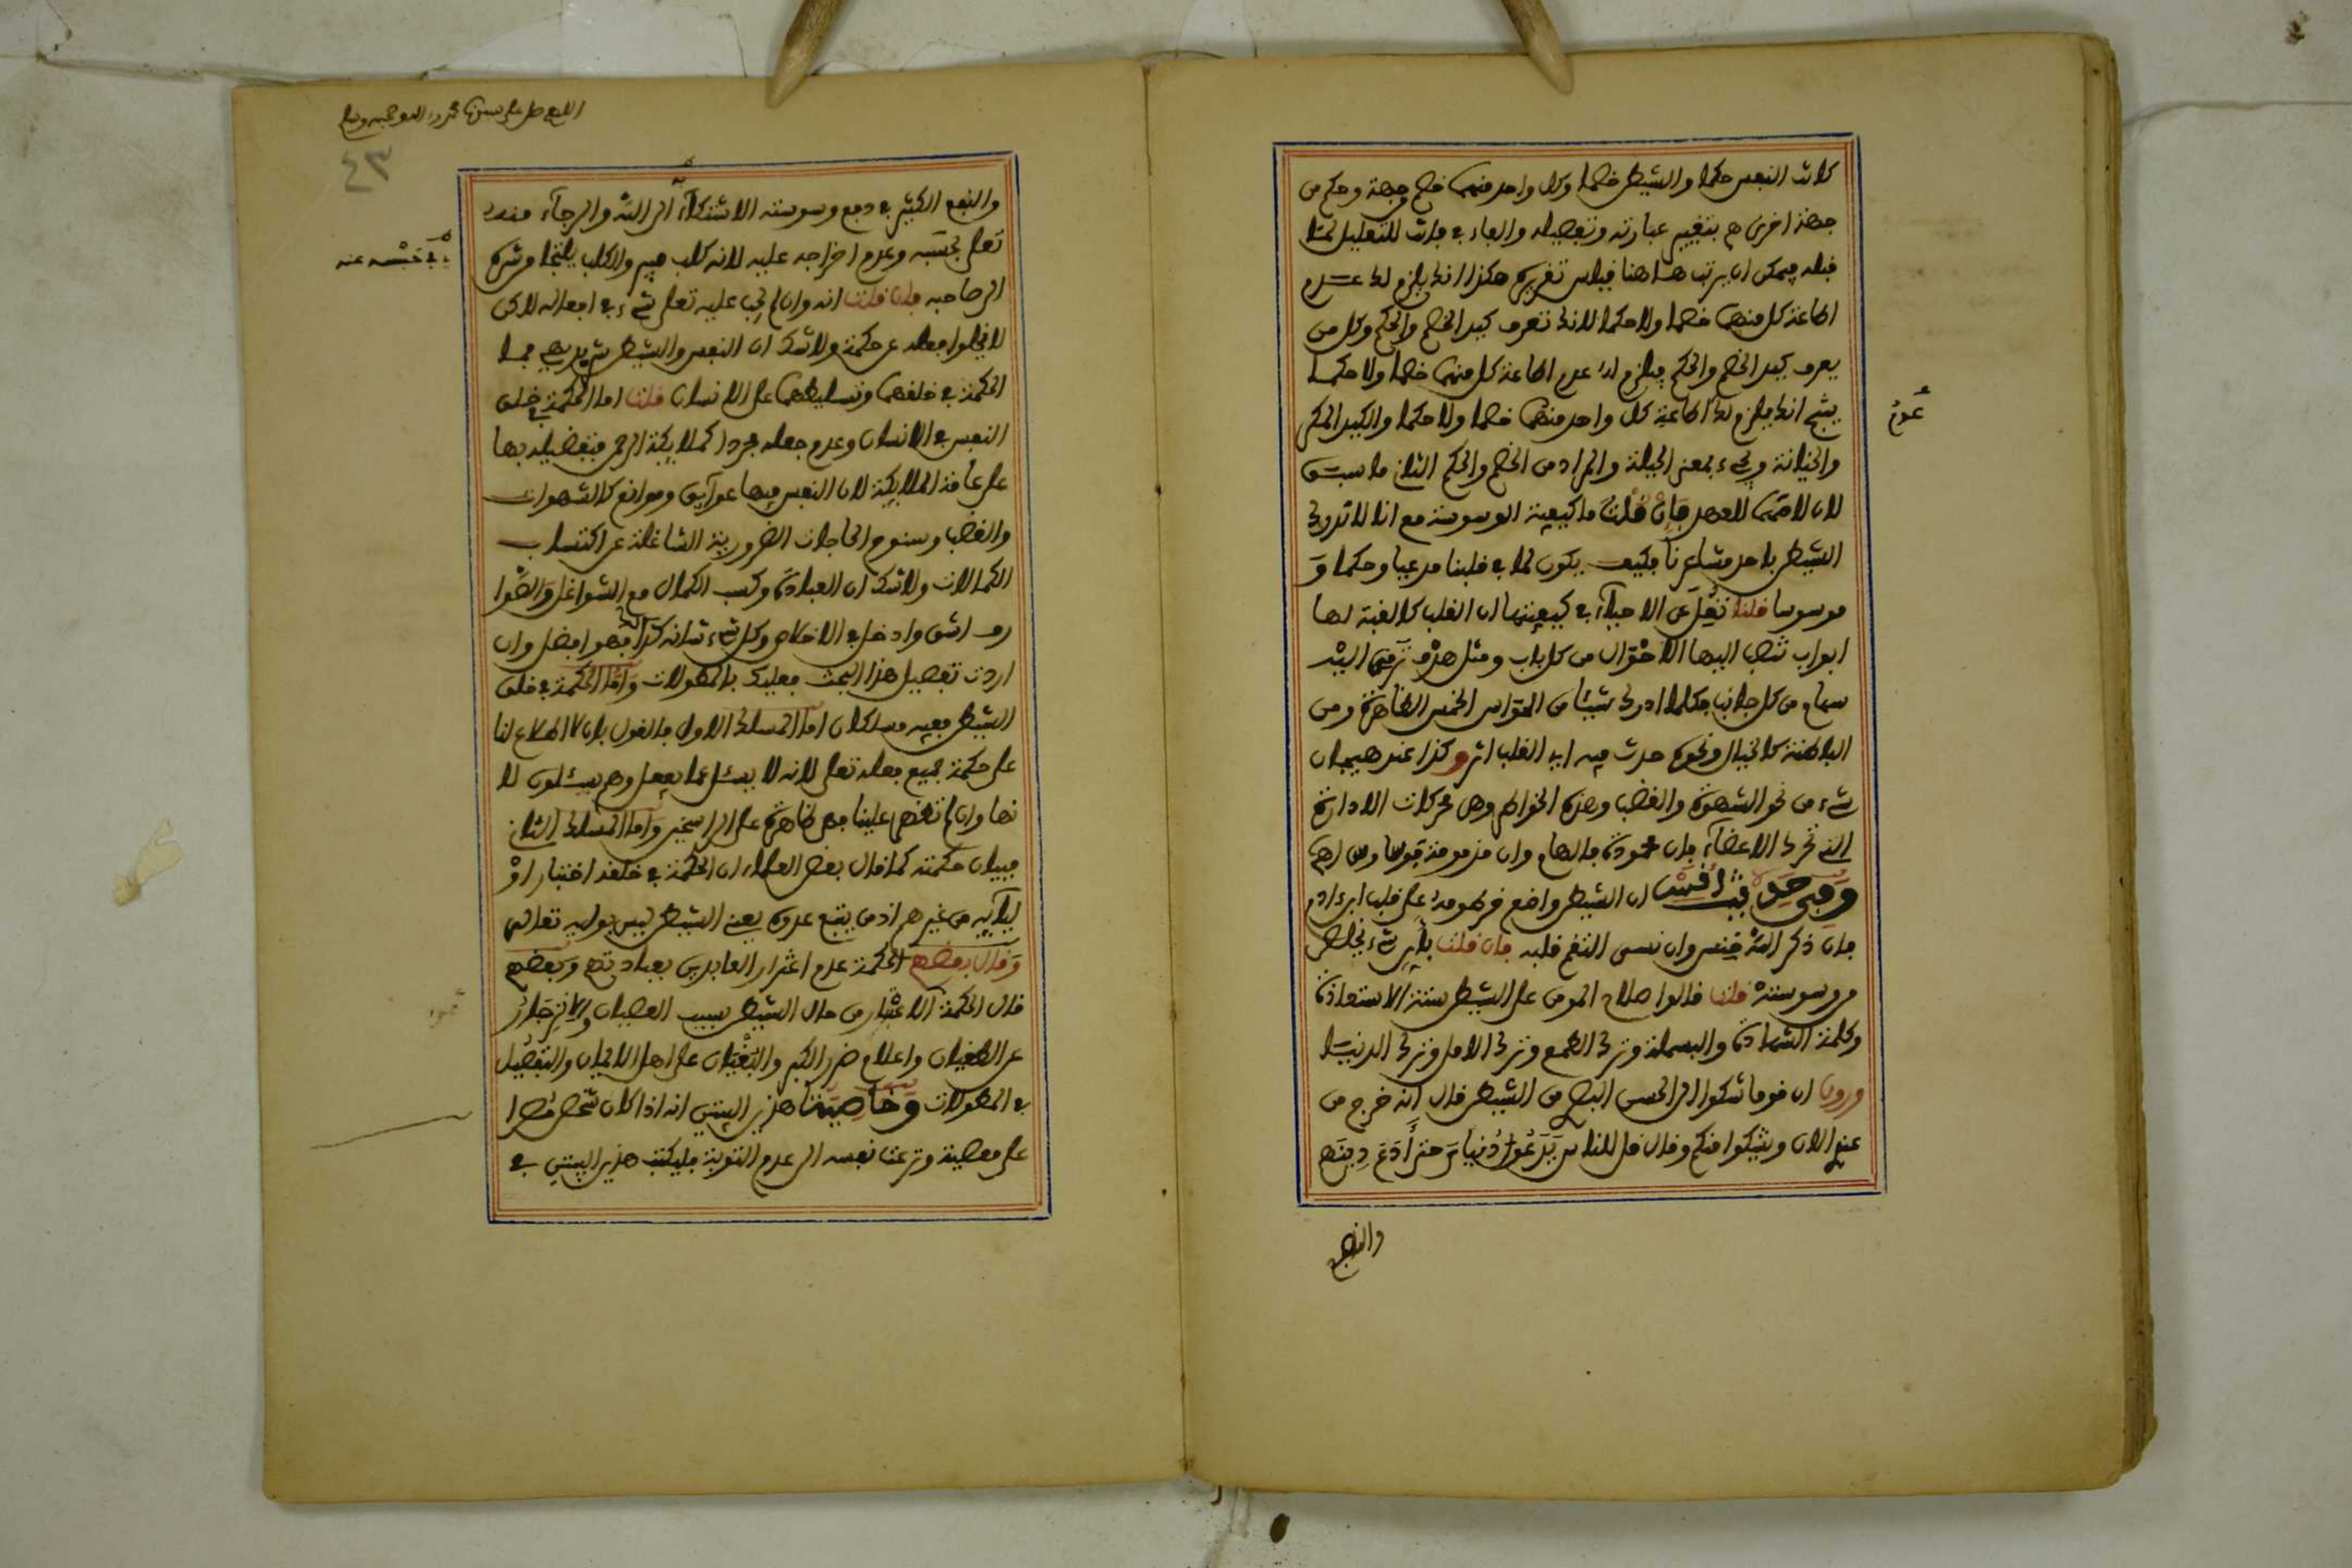 كانت النفس حكما والشيطن خصما وكل واحد منهما خصم وجهة وحكم من
جهة اخرى هم بتغيير عبارته وتفصيله والفاء في فانت للتعليل لمتا
قبله فيمكن ان يرتب هاهنا قياس تقريره هكذا انك يلزم لك عدم
اطاعة كل منهما خصما ولا حكما لانك تعرف كيد الخصم والحكم وكل من
يعرف كيد الخصم والحكم فيلزم له عدم اطاعة كل منهما خصما ولا حكما
ينتج انك يلزم لك اطاعة كل واحد منهما خصما ولا حكما والكيد المكر
عدم
والخيانة ويجيء بمعنى الحيلة والمراد من الخصم والحكم الثاني ما سبق
لان لامهما للعهد فان قلت ما كيفية الوسوسة مع انا لا ندرك
الشيطن باحد مشاعرنا فكيف يكون لما في قلبنا مدعيا وحكما و
موسوسا قلنا نقل عن الاحياء في كيفيتها ان القلب كالقبة لها
ابواب تنصب اليها الاحوال من كل باب ومثل هدف ترمى اليه
سهام من كل جانب فكلما ادرك شيئا من الحواس الخمس الظاهرة ومن
الباطنة كالخيال ونحوه حدث فيه اي القلب اثر وكذا عند هيجان
شيء من نحو الشهوة والغضب وهذه الخواطر وهي محركات الارادة
التي تحرك الاعضاء فان محمودة فالهام وان مذمومة فوسواس اهـ
وفي حديث انس ان الشيطن واضع خرطومه على قلب ابن ادم
فان ذكر الله خنس وان نسي التقم قلبه فان قلت باي شيء يخلص
من وسوسته قلنا قالوا سلاح المومن على الشيطن ستة الاستعاذة
وكلمة الشهادة والبسملة وترك الطمع وترك الامل وترك الدنيا
وروي ان قوما شكوا الى الحسن البصري من الشيطن قال انه خرج من
عندي الان ويشكوا منكم وقال قل للناس يدعوا دنياي حتى ادع دينهم
والنفع
اللهم صل على سيدنا محمد واله وصحبه وسلم
٤٣
والنفع الكثير في دفع وسوسته الاشتكاء الى الله والرجاء منه
تعلى لحبسه وعدم اخراجه عليه لانه كلب مهير والكلب يلتجأ من شره
في حبسه عنه
الى صاحبه فان قلت انه وان لم يجب عليه تعلى شيء في افعاله لاكن
لا يخلوا فعله عن حكمة ولا شك ان النفس والشيطن شريرين فما
الحكمة في خلقهما وتسليطهما على الانسان قلنا اما الحكمة في خلق
النفس في الانسان وعدم جعله مجردا كملايكة الرحمن فتفضيله بها
على عامة الملايكة لان النفس فيها عوايق وموانع كالشهوات
والغضب وسنوح الحاجات الضرورية الشاغلة عن اكتساب
الكمالات ولا شك ان العبادة وكسب الكمال مع الشواغل والصوا
رف اشق وادخل في الاخلاص وكل شيء شانه كذلك فهو افضل وان
اردت تفصيل هذا البحث فعليك بالمطولات واما الحكمة في خلق
الشيطن ففيه مسلكان اما المسلك الاول فالقول بان لا اطلاع لنا
على حكمة جميع فعله تعلى لانه لا يسئل عما يفعل وهم يسئلون لا
نها وان لم تظهر علينا فهي ظاهرة على الراسخين واما المسلك الثاني
فبيان حكمته كما قال بعض العلماء ان الحكمة في خلقه اختبار او
ليايه من غيرهم اذ من يتبع عدوه يعني الشيطن ليس بوليه تعلى
وقال بعضهم الحكمة عدم اغترار العابدين بعبادتهم وبعضهم
قال الحكمة الاعتبار من حال الشيطن بسبب العصيان والانزجار
عن الطغيان واعلام ضرر الكبر والبغيان على اهل الايمان والتفصيل
في المطولات وخاصية هذين البيتين انه اذا كان شخص مصرا
على معصية وترغب نفسه الى عدم التوبة فليكتب هذين البيتين في